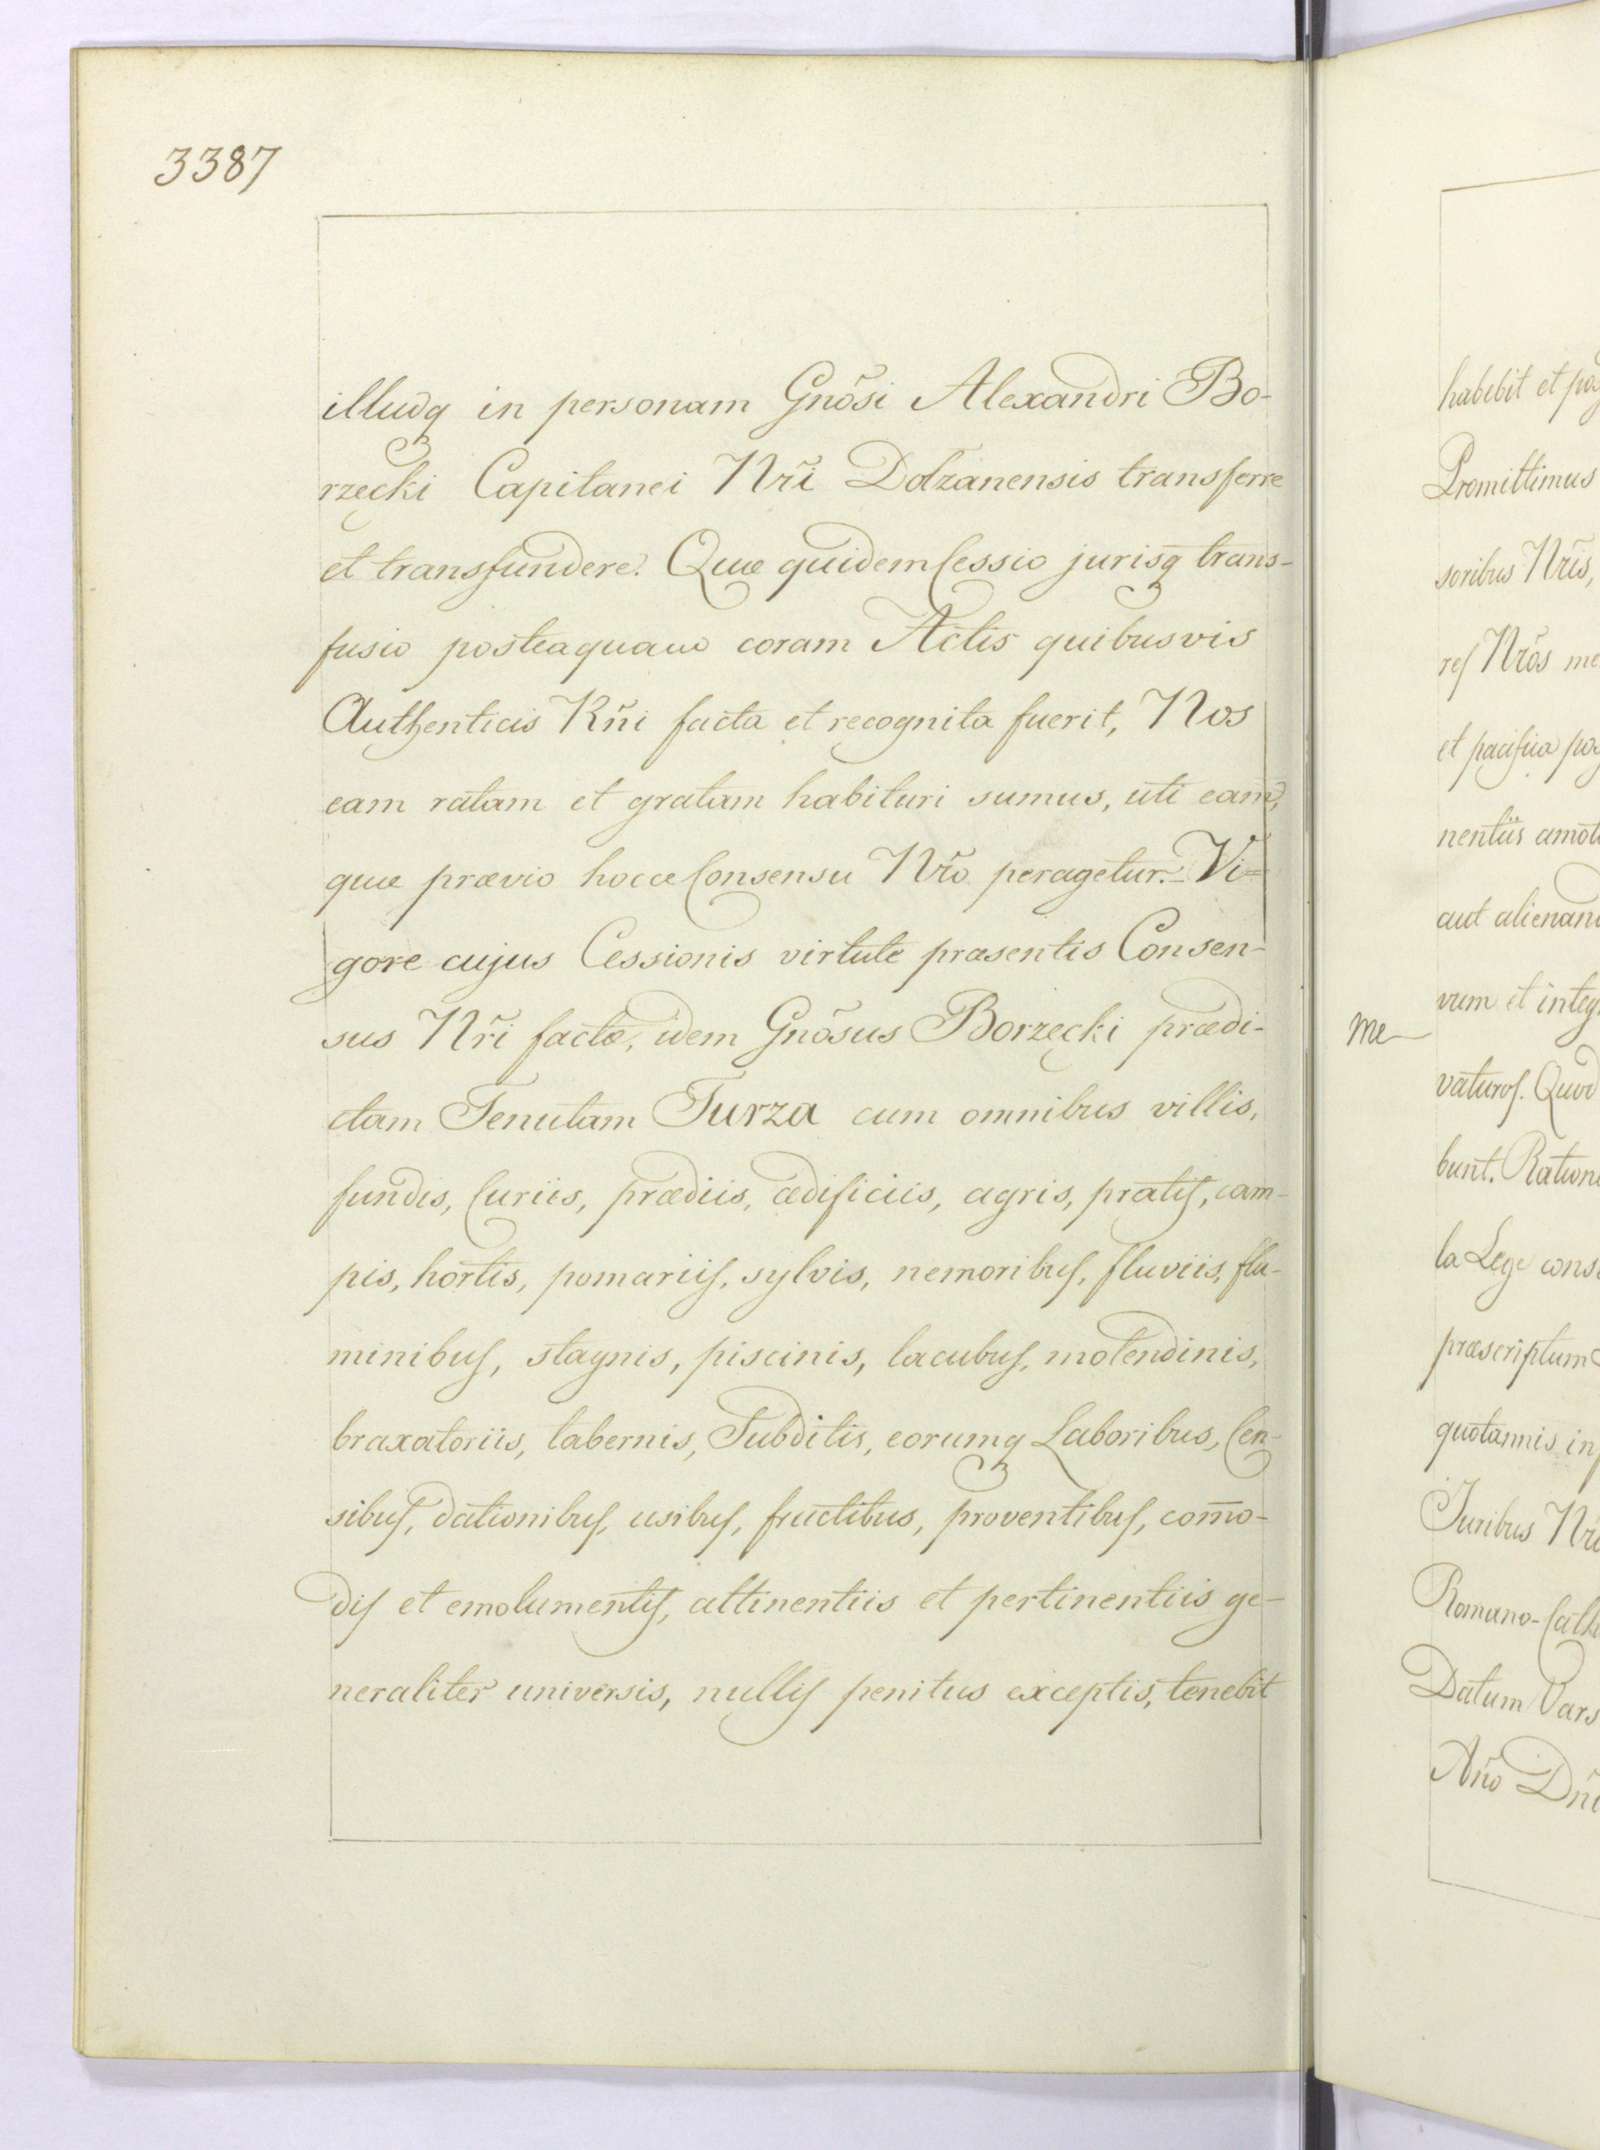 3387
illudq in personam Gnõsi Alexandri Bo-
rzęcki Capitanei Nr̃i Dolzanensis transferre
et transfundere. Quæ quidem Cessio jurisq trans-
fusio posteaquam coram Actis quibusvis
Authenticis Rñi facta et recognita fuerit, Nos
eam ratam et gratam habituri sumus, uti eam,
quæ prævio hocce Consensu Nr̃o peragetur. Vi=
gore cujus Cessionis virtute præsentis Consen-
sus Nr̃i factæ, idem Gnõsus Borzęcki prædi-
ctam Tenutam Turza cum omnibus villis,
fundis, Curiis, prædiis, ædificiis, agris, pratis, cam-
pis, hortis, pomariis, sylvis, nemoribus, fluviis, flu-
minibus, stagnis, piscinis, lacubus, molendinis,
braxatoriis, tabernis, Subditis, eorumq Laboribus, Cen-
sibus, dationibus, usibus, fructibus, proventibus, com̃o-
dis et emolumentis, attinentiis et pertinentiis ge-
neraliter universis, nullis penitus exceptis, tenebit
habebit et
Promittimus
soribus Nr̃is,
res Nr̃os
et pacifica
nentiis
aut
vum et
me
vaturos. Quod
bunt.
la Lege
præscriptum
quotannis
Juribus
Romano-
Datum
Año